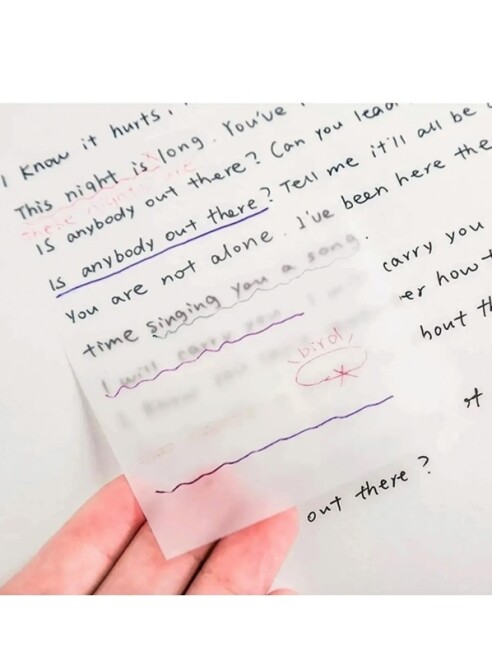 I know it hurts,
This night is long. You've
these nights are
Is anybody out there? Can you lead
Is anybody out there? Tell me it'll all be
You are not alone. I've been here the
time singing you a song.
carry you
I will carry you
er how
bird
bout th
out there?